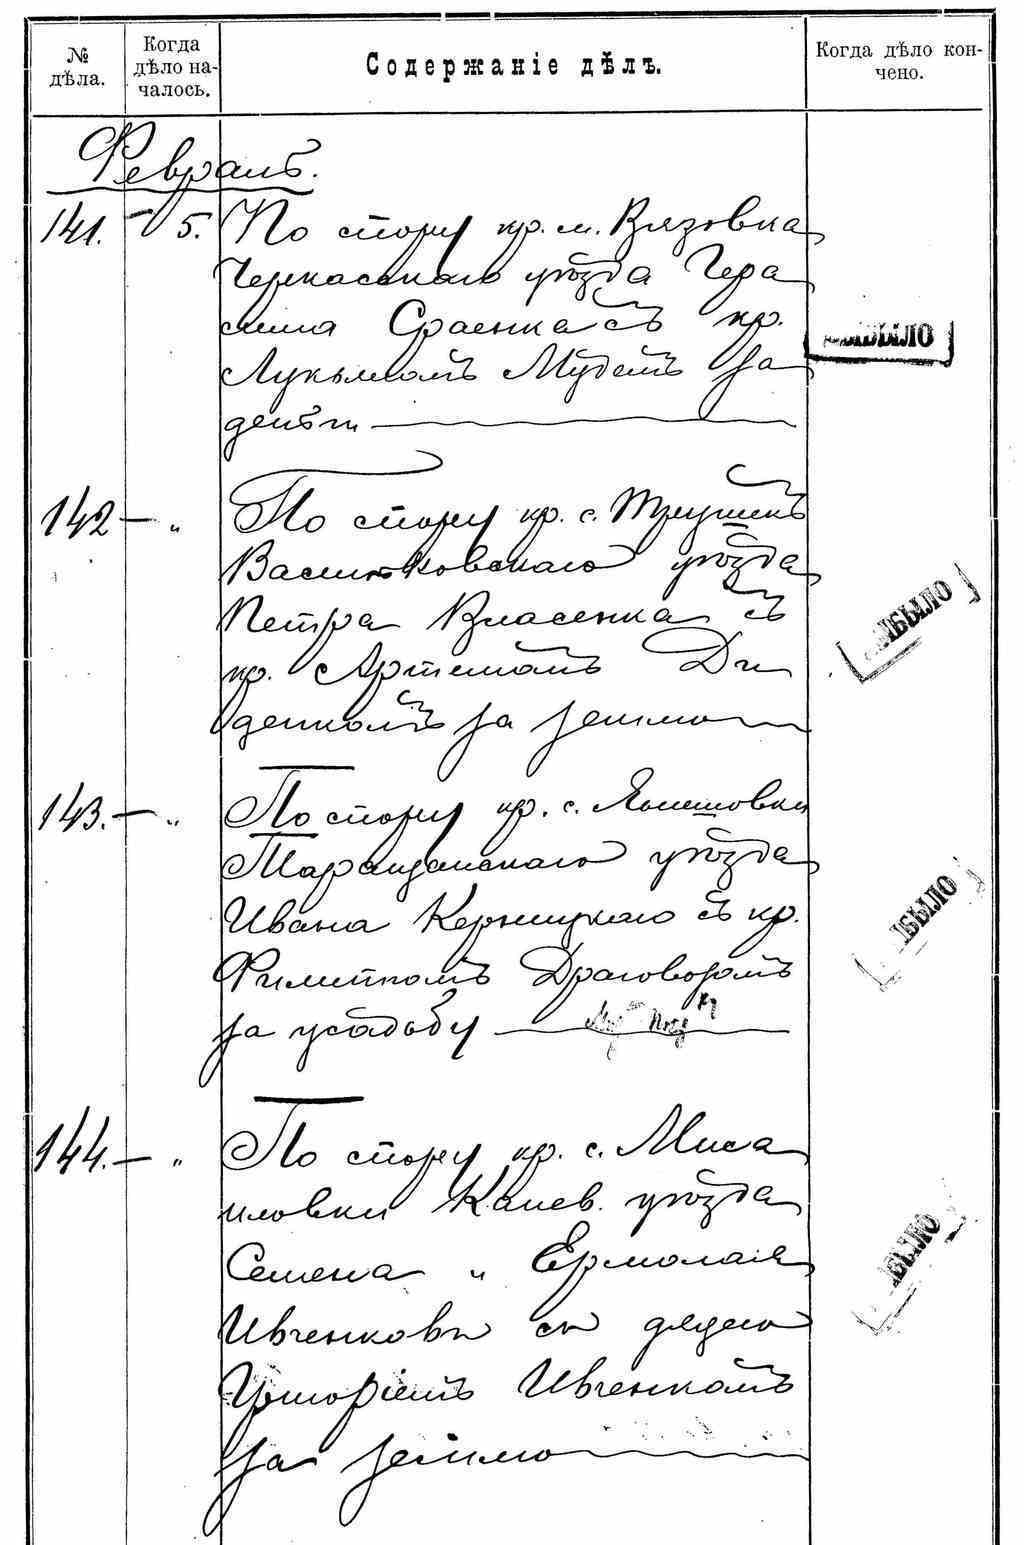 № дѣла.
Когда дѣло на-
чалось.
Содержаніе дѣлъ.
Когда дѣло кон-
чено.
Февраль.
141. — 5. По спору кр. м. Вязовка
Черкасскаго уѣзда Гера
сима Сраенка съ кр.
Лукьяномъ Мудемъ за
деньги
142 — „ По спору кр. с.
Васильковскаго уѣзда
Петра Власенка съ
кр. Артемомъ Ди
денкомъ за землю
143. — „ По спору кр. с.
Таращанскаго уѣзда
Ивана Керницкаго съ кр.
Филипомъ Драговозомъ
за усадьбу
144. — „ По спору кр. с. Миса
иловки Канев. уѣзда
Семена и Ермолая
Ивченковы съ дядею
Григоріемъ Ивченкомъ
за землю
ВЫБЫЛО
ВЫБЫЛО
ВЫБЫЛО
ВЫБЫЛО